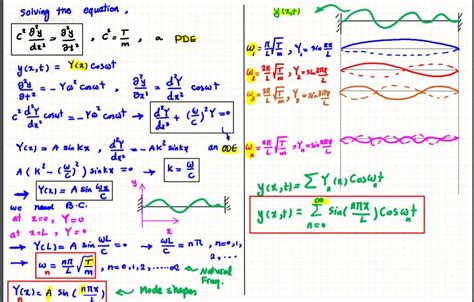 solving the equation,
c² ∂²y/∂x² = ∂²y/∂t² , c² = T/m , a PDE
y(x,t) = Y(x) cosωt
∂²y/∂t² = -Yω² cosωt , ∂²y/∂x² = d²Y/dx² cosωt
c² d²Y/dx² cosωt = -Yω² cosωt → d²Y/dx² + (ω/c)² Y = 0
Y(x) = A sin kx , d²Y/dx² = -AK² sin kx an ODE
A(K² - (ω/c)²) sin kx = 0 → k = ω/c
→ Y(x) = A sin ωx/c
we need B.C.
at x=0, Y=0
at x=L, Y=0
y
x
→ Y(L) = A sin ωL/c = 0 → ωL/c = nπ, n=0,1,2,...
→ ωn = nπ/L √(T/m), n=0,1,2,.... Natural Freq.
Yn(x) = A sin(nπx/L) Mode shapes
y(x,t)
ω₁ = π/L √(T/m), Y₁ = sin πx/L
ω₂ = 2π/L √(T/m), Y₂ = sin 2πx/L
ω₃ = 3π/L √(T/m), Y₃ = sin 3πx/L
ωn = nπ/L √(T/m), Yn = sin nπx/L
y(x,t) = Σ Yn(x) Cosωnt
y(x,t) = Σ n=0 ∞ sin(nπx/L) Cosωnt